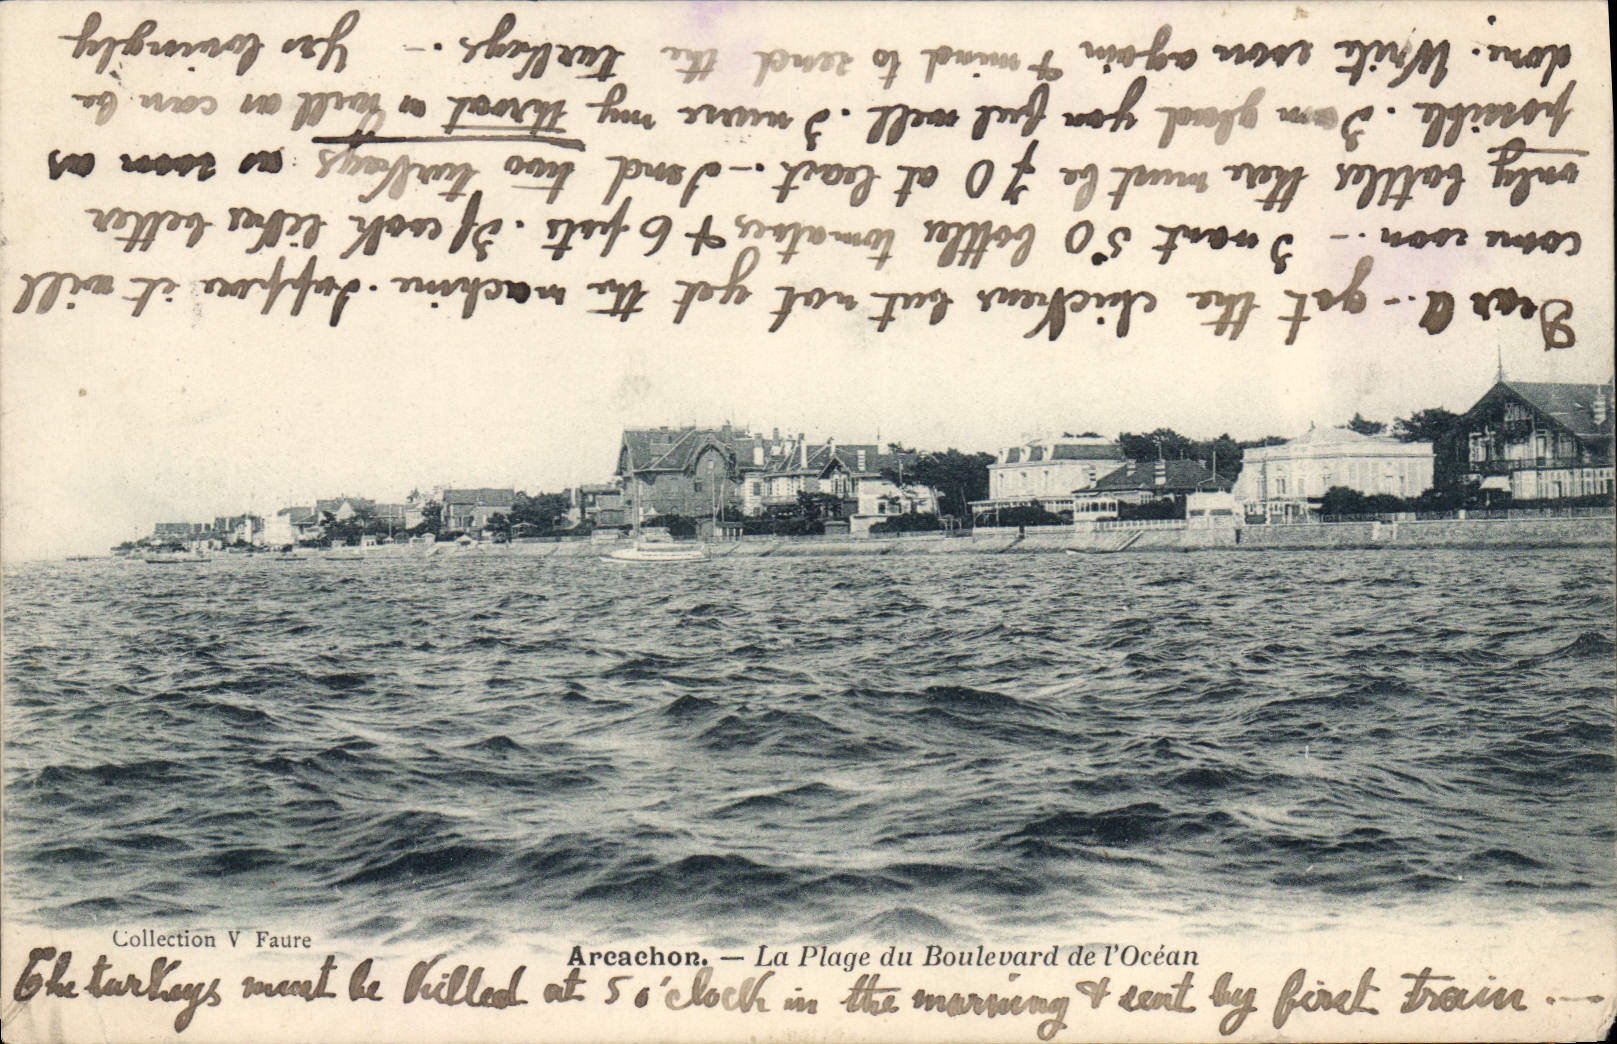 Dear A. - got the chickens but not yet the machine. Suppose it will
come soon. - I want 50 bottles tomatoes, & 6 pots. If cook likes better
only bottles there must be 70 at least. - Send two turkeys as soon as
possible. I am glad you feel well. I nurse my throat as well as can be
done. Write soon again & mind to send the turkeys. - Yrs lovingly
Collection V Faure
Arcachon. — La Plage du Boulevard de l'Océan
The turkeys must be killed at 5 o'clock in the morning & sent by first train. -